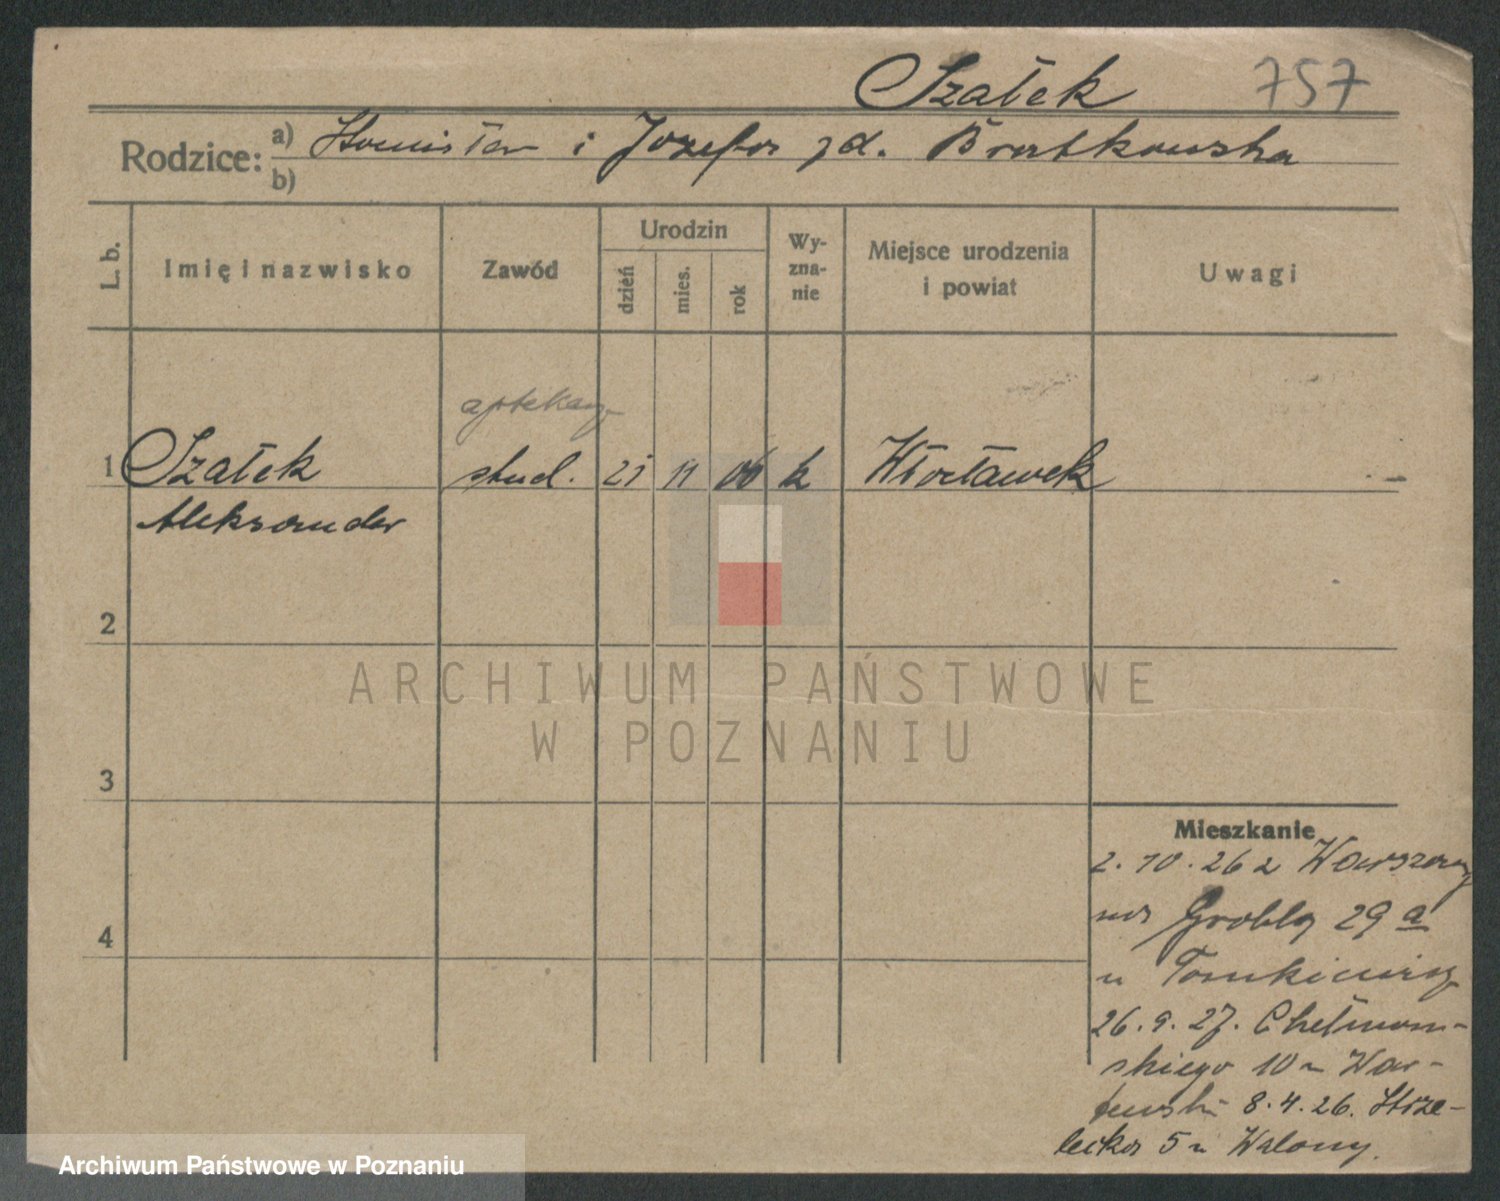 Szałek 757
Rodzice: a) Stanisław i Józefa zd. Bratkowska
b)
L. b.
Imię i nazwisko
Zawód
Urodzin
dzień
mies.
rok
Wy-
zna-
nie
Miejsce urodzenia
i powiat
Uwagi
aptekarz
1 Szałek stud. 21 11 06 k Włocławek
Aleksander
2
3
4
ARCHIWUM PAŃSTWOWE
W POZNANIU
Mieszkanie
2.10.26 z Warszawy
na Grobla 29 a
u Tomkiewicz
26.9.27. Chełmoń-
skiego 10 u War-
8.4.26. Strze-
lecka 5 u Walony.
Archiwum Państwowe w Poznaniu